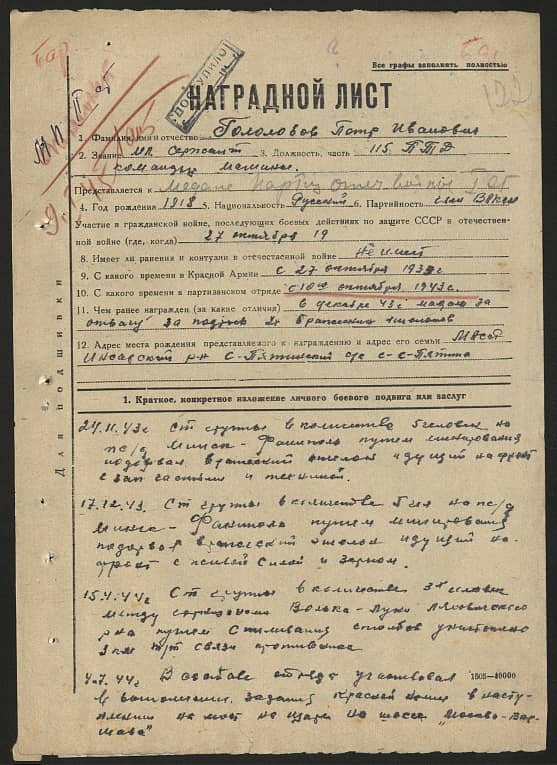 Все графы заполнять полностью
Бар
122
ПОСТУПИЛО
НАГРАДНОЙ ЛИСТ
1. Фамилия, имя и отчество Гололобов Петр Иванович
2. Звание мл. Сержант 3. Должность, часть 115 ПТД
командир
Представляется к Медале партиз отеч войны
4. Год рождения 1918 5. Национальность Русский 6. Партийность член
Участие в гражданской войне, последующих боевых действиях по защите СССР в отечествен-
ной войне (где, когда) 27 октября 19
8. Имеет ли ранения и контузии в отечественной войне не имеет
9. С какого времени в Красной Армии с 27 октября
10. С какого времени в партизанском отряде с 10го октября 1943 г.
11. Чем ранее награжден (за какие отличия) в декабре 43 г. медалью за
отвагу за подрыв 2х вражеских эшелонов
12. Адрес места рождения представляемого к награждению и адрес его семьи
Инсарский р-н
Для подшивки
1. Краткое, конкретное изложение личного боевого подвига или заслуг
24.11.43г Ст группы в количестве 5 человек на
Минск - Фаниполь путем минирования
подорвал вражеский эшелон идущий на фронт
с зап частями и техникой.
17.12.43. Ст группы в количестве 5 чел на
Минск - Фаниполь путем минирования
подорвал вражеский эшелон идущий на
фронт с живой Силой и Зерном.
15.4.44г Ст группы в количестве 3х человек
между гарнизонами Волька - Луки Ляховичского
р-на путем Спиливания столбов уничтожено
3 км т/т связи противника
4.7.44г. В составе отряда участвовал
1505-40000
в выполнении задания Красной Армии в насту-
плении на мост на Щаре на шоссе „Москва-Вар-
шава"